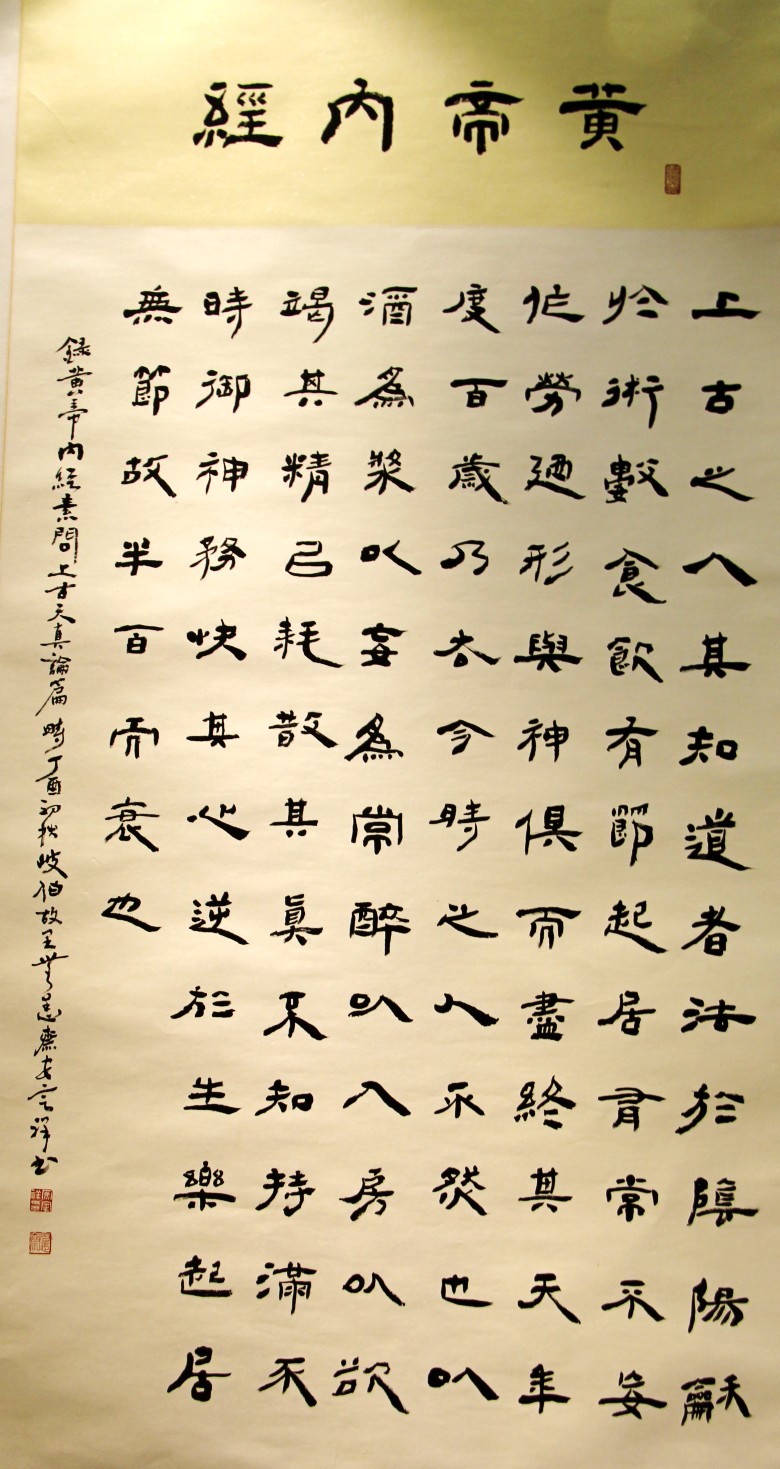 黄帝內經
上古之人其知道者法於陰陽龢
於術數食飲有節起居有常不妄
作勞迺形與神俱而盡終其天年
度百歲乃去今時之人不然也以
酒為漿以妄為常醉以入房以欲
竭其精已耗散其真不知持滿不
時御神務快其心逆於生樂起居
無節故半百而衰也
録黄帝内經素問上古天真論篇時丁酉初秋岐伯故里無忌齋安言祥書